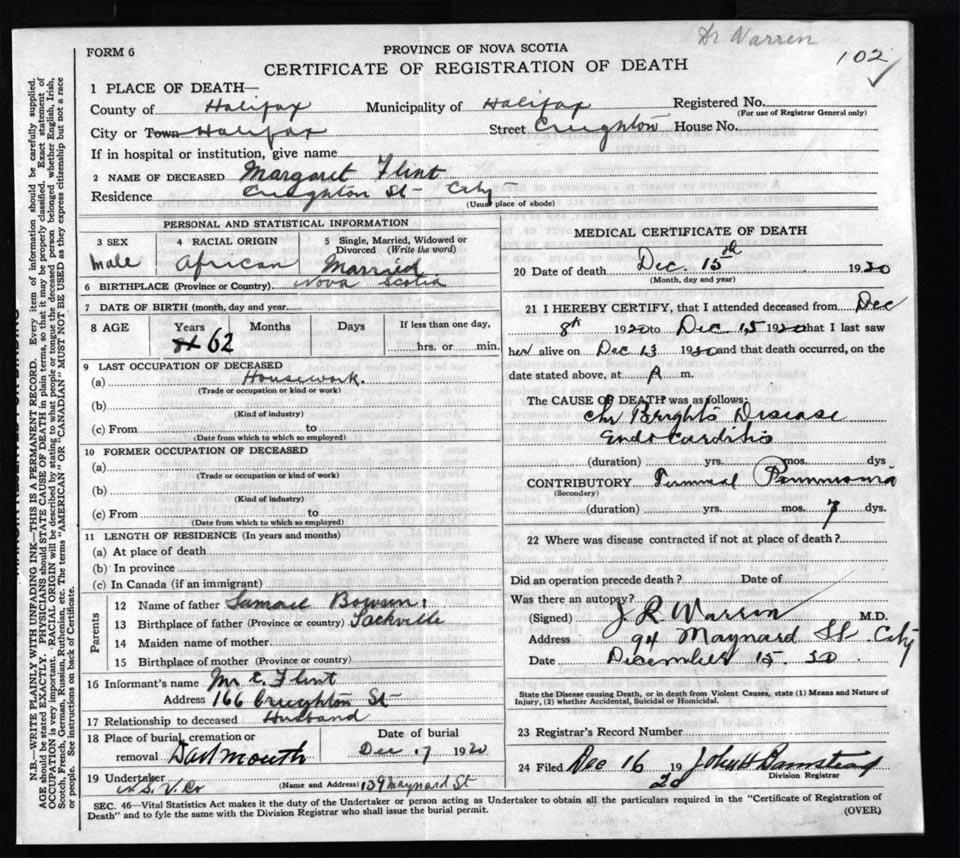 Dr Warren
102
FORM 6
PROVINCE OF NOVA SCOTIA
CERTIFICATE OF REGISTRATION OF DEATH
1 PLACE OF DEATH—
County of Halifax Municipality of Halifax Registered No.
(For use of Registrar General only)
City or Town Halifax Street Creighton House No.
If in hospital or institution, give name
2 NAME OF DECEASED Margaret Flint
Residence Creighton St City
(Usual place of abode)
PERSONAL AND STATISTICAL INFORMATION
3 SEX 4 RACIAL ORIGIN 5 Single, Married, Widowed or Divorced (Write the word)
Male African Married
6 BIRTHPLACE (Province or Country) Nova Scotia
7 DATE OF BIRTH (month, day and year)
8 AGE Years Months Days If less than one day,
62 hrs. or min.
9 LAST OCCUPATION OF DECEASED
(a) Housework.
(Trade or occupation or kind or work)
(b)
(Kind of industry)
(c) From to
(Date from which to which so employed)
10 FORMER OCCUPATION OF DECEASED
(a)
(Trade or occupation or kind of work)
(b)
(Kind of industry)
(c) From to
(Date from which to which so employed)
11 LENGTH OF RESIDENCE (In years and months)
(a) At place of death
(b) In province
(c) In Canada (if an immigrant)
Parents
12 Name of father Samuel Bowsen
13 Birthplace of father (Province or country) Sackville
14 Maiden name of mother
15 Birthplace of mother (Province or country)
16 Informant's name Mr E. Flint
Address 166 Creighton St
17 Relationship to deceased Husband
18 Place of burial, cremation or Date of burial
removal Dartmouth Dec 17 1920
19 Undertaker (Name and Address) 139 Maynard St
N.S. V. Co
MEDICAL CERTIFICATE OF DEATH
20 Date of death Dec. 15th 1920
(Month, day and year)
21 I HEREBY CERTIFY, that I attended deceased from Dec
8th 1920 to Dec 15 1920 that I last saw
her alive on Dec 13 1920 and that death occurred, on the
date stated above, at A m.
The CAUSE OF DEATH was as follows:
Chr Brights Disease
Endocarditis
(duration) yrs. mos. dys
CONTRIBUTORY Terminal Pneumonia
(Secondary)
(duration) yrs. mos. 7 dys.
22 Where was disease contracted if not at place of death?
Did an operation precede death? Date of
Was there an autopsy?
(Signed) J. R. Warren M.D.
Address 94 Maynard St City
Date December 15. 20
State the Disease causing Death, or in death from Violent Causes, state (1) Means and Nature of
Injury, (2) whether Accidental, Suicidal or Homicidal.
23 Registrar's Record Number
24 Filed Dec 16 1920 John H Barnstead
Division Registrar
SEC. 46—Vital Statistics Act makes it the duty of the Undertaker or person acting as Undertaker to obtain all the particulars required in the "Certificate of Registration of
Death" and to fyle the same with the Division Registrar who shall issue the burial permit. (OVER)
N.B.—WRITE PLAINLY WITH UNFADING INK—THIS IS A PERMANENT RECORD. Every item of information should be carefully supplied.
AGE should be stated EXACTLY. PHYSICIANS should STATE CAUSE OF DEATH in plain terms, so that it may be properly classified. Exact statement of
OCCUPATION is very important. RACIAL ORIGIN will be described by stating to what people or tongue the deceased person belonged whether English, Irish,
Scotch, French, German, Russian, Ruthenian, etc. The terms "AMERICAN" OR "CANADIAN" MUST NOT BE USED as they express citizenship but not a race
or people. See instructions on back of Certificate.